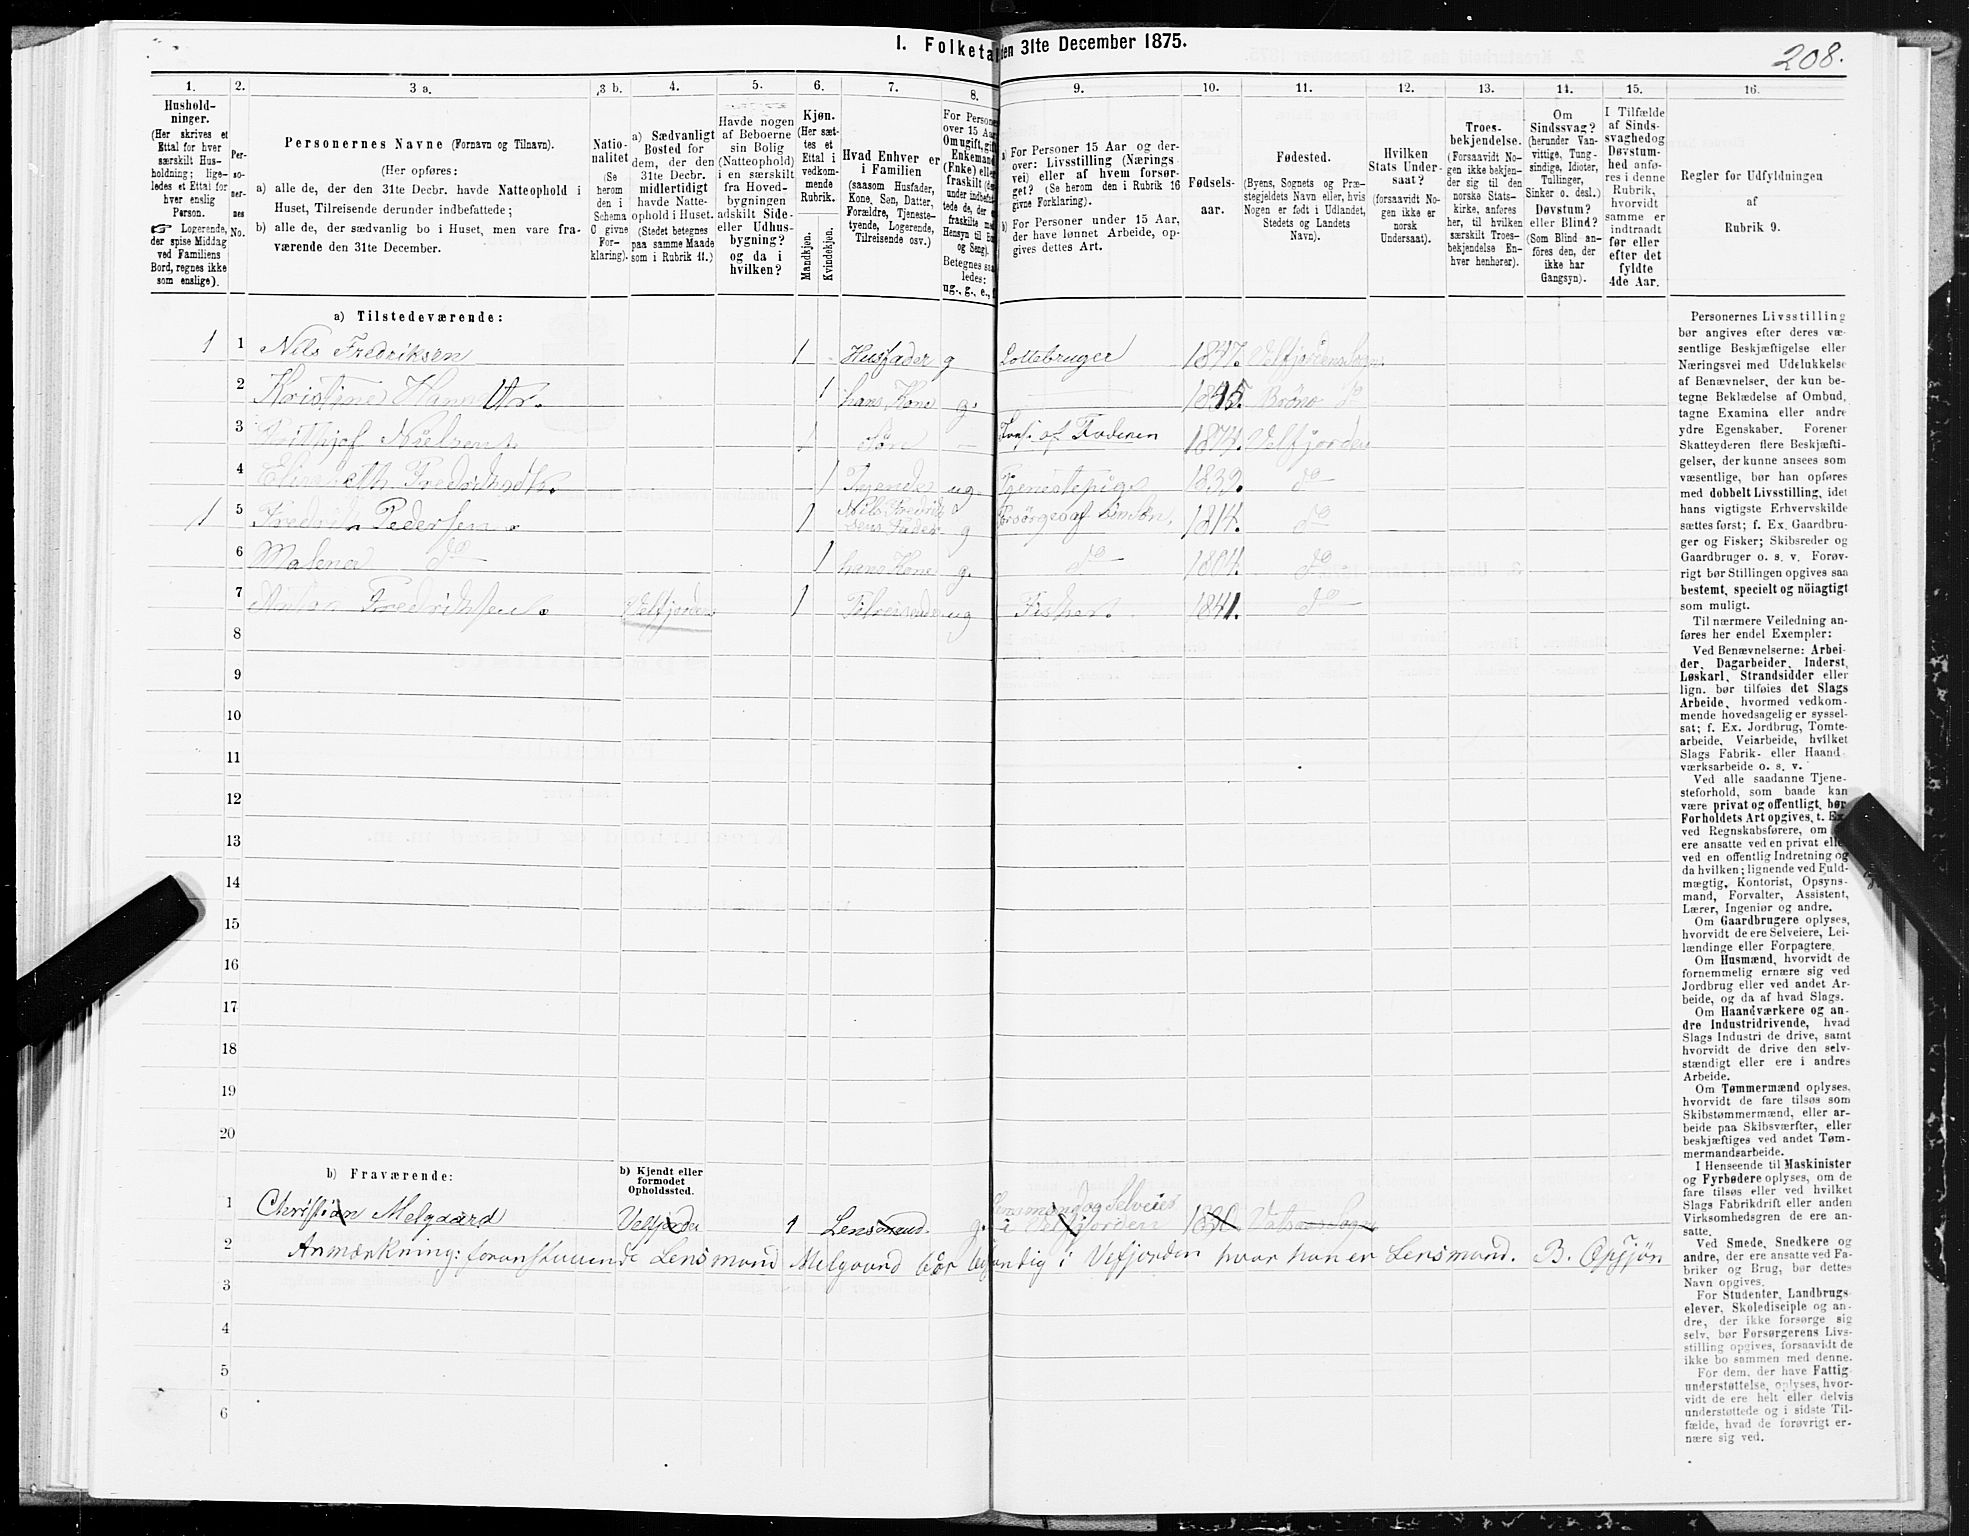 I. Folketal den 31te December 1875.
208.
1.
2.
3 a.
3 b.
4.
5.
6.
7.
8.
9.
10.
11.
12.
13.
14.
15.
16.
Hushold-
ninger.
(Her skrives et
Ettal for hver
særskilt Hus-
holdning; lige-
ledes et Ettal for
hver enslig
Person.
☞ Logerende,
der spise Middag
ved Familiens
Bord, regnes ikke
som enslige).
Per-
so-
ner-
nes
No.
Personernes Navne (Fornavn og Tilnavn).
(Her opføres:
a) alle de, der den 31te Decbr. havde Natteophold i
Huset, Tilreisende derunder indbefattede;
b) alle de, der sædvanlig bo i Huset, men vare fra-
værende den 31te December.
Natio-
nalitet
(Se
herom
den i
Schema
C givne
For-
klaring).
a) Sædvanligt
Bosted for
dem, der den
31te Decbr.
midlertidigt
havde Natte-
ophold i Huset.
(Stedet betegnes
paa samme Maade
som i Rubrik 11.)
Havde nogen
af Beboerne
sin Bolig
(Natteophold)
i en særskilt
fra Hoved-
bygningen
adskilt Side-
eller Udhus-
bygning?
og da i
hvilken?
Kjøn.
(Her sæt-
tes et
Ettal i
vedkom-
mende
Rubrik.
Mandkjøn.
Kvindekjøn.
Hvad Enhver er
i Familien
(saasom Husfader,
Kone, Søn, Datter,
Forældre, Tjeneste-
tyende, Logerende,
Tilreisende osv.)
For Personer
over 15 Aar
Om ugift, gift
Enkemand
(Enke) eller
fraskilt
under indbefat-
tede de, der
fraskilte med
Hensyn til Bord
og Seng).
Betegnes saa-
ledes:
ug., g., e.,
a) For Personer 15 Aar og der-
over: Livsstilling (Nærings
vei) eller af hvem forsør-
get? (Se herom den i Rubrik 16
givne Forklaring).
b) For Personer under 15 Aar,
der have lønnet Arbeide, op-
gives dettes Art.
Fødsels-
aar.
Fødested.
(Byens, Sognets og Præ-
stegjeldets Navn eller, hvis
Nogen er født i Udlandet,
Stedets og Landets
Navn).
Hvilken
Stats Under-
saat?
(forsaavidt No-
gen ikke er
norsk
Undersaat).
Troes-
bekjendelse.
(Forsaavidt No-
gen ikke bekjen-
der sig til den
norske Stats-
kirke, anføres
her, til hvilken
særskilt Troes-
bekjendelse En-
hver henhører).
Om
Sindssvag?
(herunder Van-
vittige, Tung-
sindige, Idioter,
Tullinger,
Sinker o. desl.)
Døvstum?
eller Blind?
(Som Blind an-
føres den, der
ikke har
Gangsyn).
I Tilfælde
af Sinds-
svaghed og
Døvstum-
hed anfø-
res i denne
Rubrik,
hvorvidt
samme er
indtraadt
før eller
efter det
fyldte
4de Aar.
Regler for Udfyldningen
af
Rubrik 9.
a) Tilstedeværende:
1 1 Nils Fredriksen 1 Husfader g Lottebruger 1847. Velfjordens Sogn
2 Kristine Hansdtr. 1 hans Kone g. 1845. Brønø do
3 Frithjof Nielsen 1 Søn – Fors. af Faderen 1874. Velfjorden
4 Elisabeth Fredriksdtr. 1 Tyende ug. Tjenestepige 1839. do
1 5 Fredrik Pedersen 1 Nils Fredrik
sens Fader g Forsørges af sin Søn. 1814. do
6 Malena do 1 hans Kone g. do 1804. do
7 Fredriksen Velfjorden 1 Tilreisende ug Fisker. 1841. do
8
9
10
11
12
13
14
15
16
17
18
19
20
b) Fraværende:
b) Kjendt eller
formodet
Opholdssted.
1 Christian Melgaard Velfjorden 1 Lensmand. g. Lensmand og Selveier
i Velfjorden Sogn
2 Anmærkning: foranstaaende Lensmand Melgaard bor bestandig i Vefjorden hvor han er Lensmand. B. Opsjøn
3
4
5
6
Personernes Livsstilling
bør angives efter deres væ-
sentlige Beskjæftigelse eller
Næringsvei med Udelukkelse
af Benævnelser, der kun be-
tegne Beklædelse af Ombud,
tagne Examina eller andre
ydre Egenskaber. Forener
Skatteyderen flere Beskjæfti-
gelser, der kunne ansees som
væsentlige, bør han opføres
med dobbelt Livsstilling, idet
hans vigtigste Erhvervskilde
sættes først; f. Ex. Gaardbru-
ger og Fisker; Skibsreder og
Gaardbruger o. s. v. Forøv-
rigt bør Stillingen opgives saa
bestemt, specielt og nöiagtigt
som muligt.
Til nærmere Veiledning an-
føres her endel Exempler:
Ved Benævnelserne: Arbei-
der, Dagarbeider, Inderst,
Løskarl, Strandsidder eller
lign. bør tilføies det Slags
Arbeide, hvormed vedkom-
mende hovedsagelig er syssel-
sat; f. Ex. Jordbrug, Tomte-
arbeide, Veiarbeide, hvilket
Slags Fabrik- eller Haand-
værksarbeide o. s. v.
Ved alle saadanne Tjene-
steforhold, som baade kan
være privat og offentligt, bør
Forholdets Art opgives, t. Ex.
ved Regnskabsførere, om
ere ansatte ved en privat eller
ved en offentlig Indretning og
da hvilken; lignende ved Fuld-
mægtig, Kontorist, Opsyns-
mand, Forvalter, Assistent,
Lærer, Ingeniør og andre.
Om Gaardbrugere oplyses,
hvorvidt de ere Selveiere, Lei-
lændinge eller Forpagtere.
Om Husmænd, hvorvidt de
fornemmelig ernære sig ved
Jordbrug eller ved andet Ar-
beide, og da af hvad Slags.
Om Haandværkere og an-
dre Industridrivende, hvad
Slags Industri de drive, samt
hvorvidt de drive den selv-
stændigt eller ere i andres
Arbeide.
Om Tømmermænd oplyses,
hvorvidt de fare tilsøs som
Skibstømmermænd, eller ar-
beide paa Skibsværfter, eller
beskjæftiges ved andet Tøm-
mermandsarbeide.
I Henseende til Maskinister
og Fyrbødere oplyses, om de
fare tilsøs eller ved hvilket
Slags Fabrikdrift eller anden
Virksomhedsgren de ere an-
satte.
Ved Smede, Snedkere og
andre, der ere ansatte ved Fa-
briker og Brug, bør dettes
Navn opgives.
For Studenter, Landbrugs-
elever, Skoledisciple og an-
dre, der ikke forsørge sig
selv, bør Forsørgerens Livs-
stilling opgives, forsaavidt de
ikke bo sammen med denne.
For dem, der have Fattig-
understøttelse, oplyses, hvor-
vidt de ere helt eller delvis
understøttede og i sidste Til-
fælde, hvad de forøvrigt er-
nære sig ved.